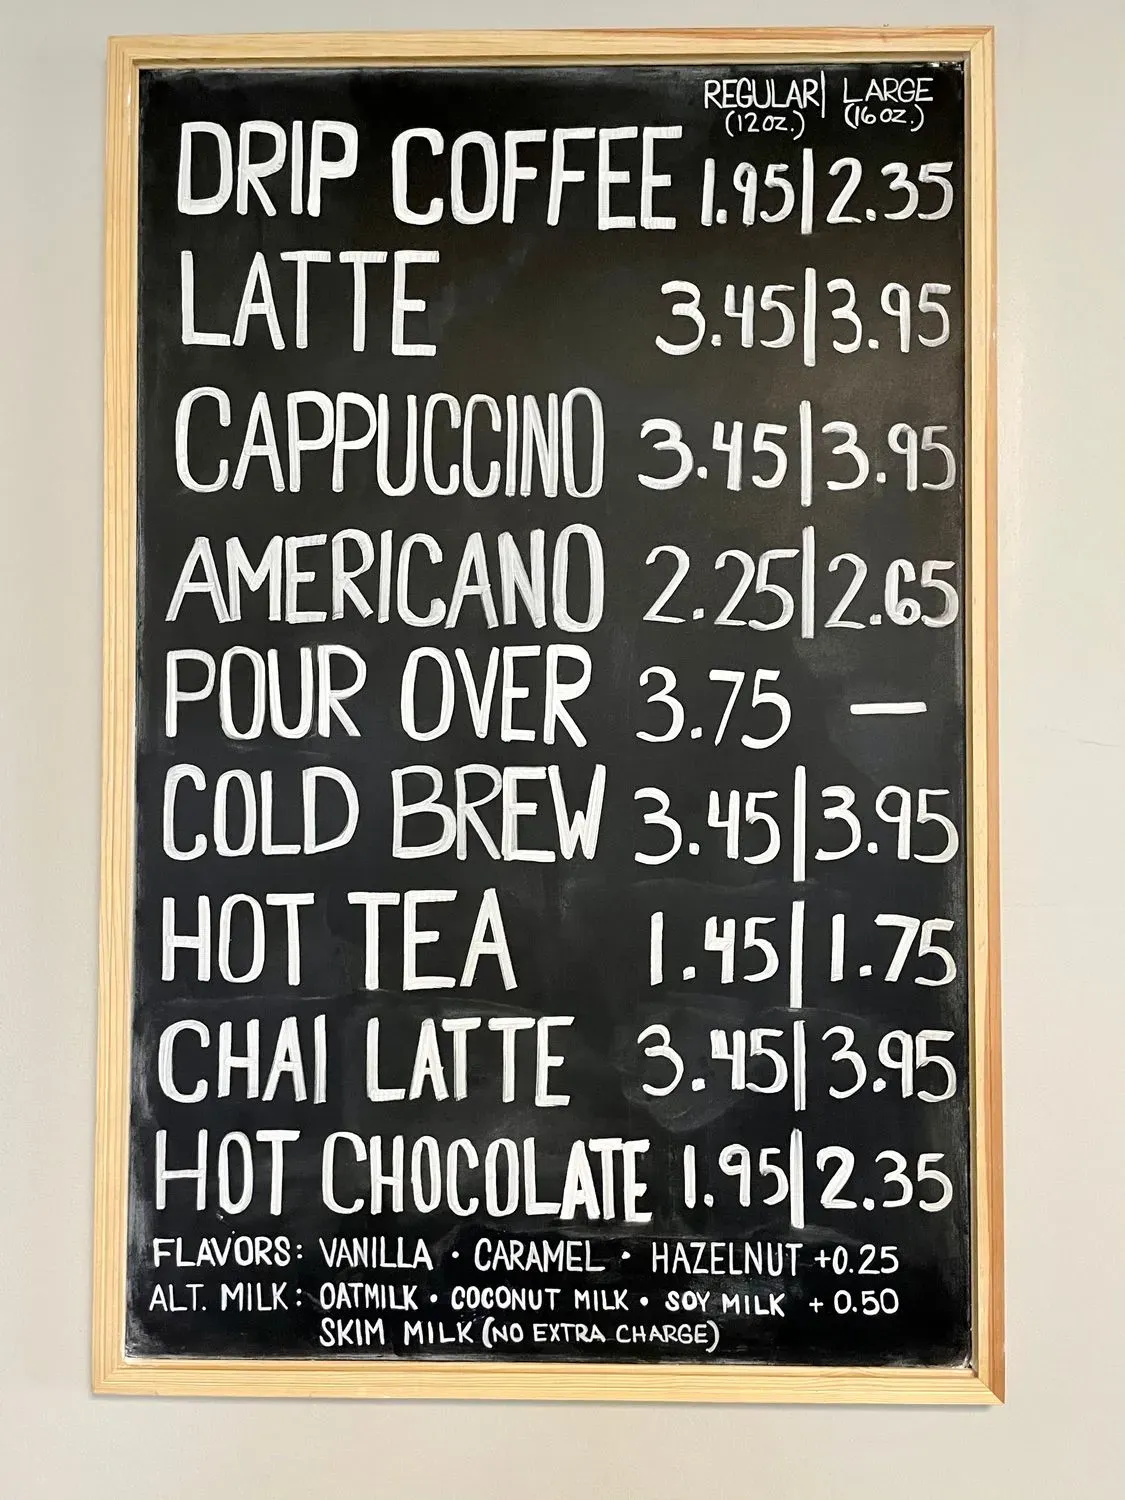 REGULAR| LARGE
(12 OZ.) (16 OZ.)
DRIP COFFEE 1.95|2.35
LATTE 3.45|3.95
CAPPUCCINO 3.45|3.95
AMERICANO 2.25|2.65
POUR OVER 3.75 —
COLD BREW 3.45|3.95
HOT TEA 1.45|1.75
CHAI LATTE 3.45|3.95
HOT CHOCOLATE 1.95|2.35
FLAVORS: VANILLA • CARAMEL • HAZELNUT +0.25
ALT. MILK: OATMILK • COCONUT MILK • SOY MILK +0.50
SKIM MILK (NO EXTRA CHARGE)